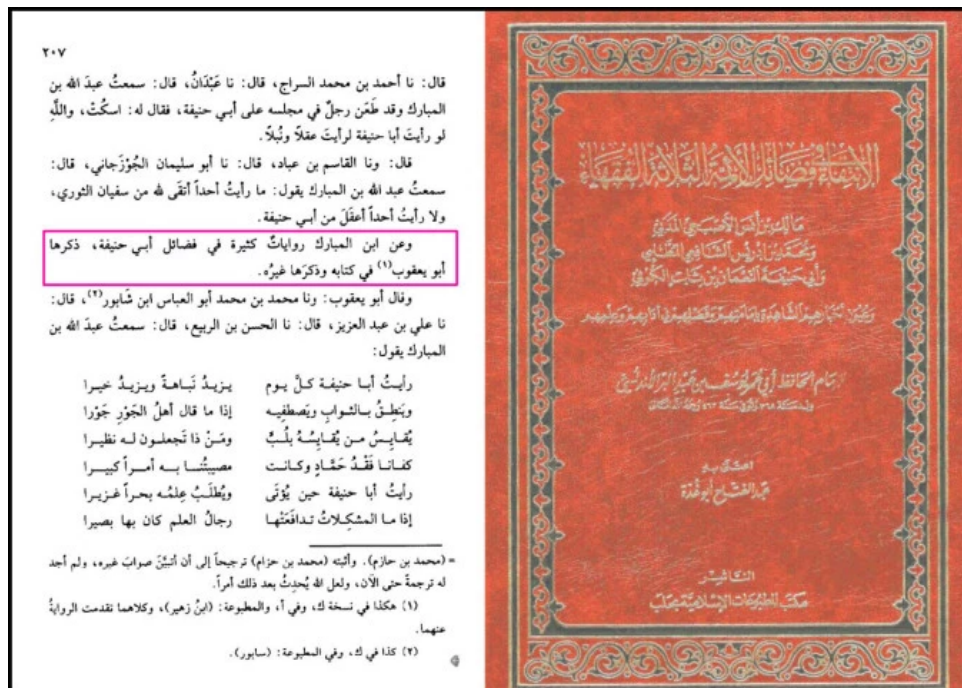 ٢٠٧
قال: نا أحمد بن محمد السراج، قال: نا عَبْدَانُ، قال: سمعتُ عبدَ الله بن
المبارك وقد طَعَن رجلٌ في مجلسه على أبي حنيفة، فقال له: اسكُتْ، واللَّهِ
لو رأيتَ أبا حنيفة لرأيتَ عقلاً ونُبلاً.
قال: ونا القاسم بن عباد، قال: نا أبو سليمان الجُوْزَجاني، قال:
سمعتُ عبد الله بن المبارك يقول: ما رأيتُ أحداً أتقَى لله من سفيان الثوري،
ولا رأيتُ أحداً أعقَلَ من أبي حنيفة.
وعن ابن المبارك رواياتٌ كثيرة في فضائل أبي حنيفة، ذكرها
أبو يعقوب(١) في كتابه وذكرَها غيرُه.
وقال أبو يعقوب: ونا محمد بن محمد أبو العباس ابن شَابور(٢)، قال:
نا علي بن عبد العزيز، قال: نا الحسن بن الربيع، قال: سمعتُ عبدَ الله بن
المبارك يقول:
رأيتُ أبا حنيفة كلَّ يوم يزيدُ نَباهةً ويزيدُ خيرا
ويَنطِقُ بالثواب ويَصطفيه إذا ما قال أهلُ الجَوْرِ جَوْرا
يُقايِسُ من يُقايِسُهُ بلُبٍّ ومَنْ ذا تَجعلون له نظيرا
كفانا فَقْدُ حَمَّادٍ وكانت مصيبتُنا به أمراً كبيرا
رأيتُ أبا حنيفة حين يُؤتَى ويُطلَبُ عِلمُه بحراً غزيرا
إذا ما المشكِلاتُ تدافَعَتْها رجالُ العلم كان بها بصيرا
= (محمد بن حازم). وأثبته (محمد بن حزام) ترجيحاً إلى أن أتبيَّنَ صوابَ غيره، ولم أجد
له ترجمةً حتى الآن، ولعل الله يُحدِثُ بعد ذلك أمراً.
(١) هكذا في نسخة ك، وفي أ، والمطبوعة: (ابنُ زهير)، وكلاهما تقدمت الروايةُ
عنهما.
(٢) كذا في ك، وفي المطبوعة: (سابور).
الانتقاء في فضائل الأئمة الثلاثة الفقهاء
مالك بن أنس الأصبحي المدني
ومحمد بن إدريس الشافعي المطلبي
وأبي حنيفة النعمان بن ثابت الكوفي
وعيون أخبارهم الشاهدة بإمامتهم وفضلهم في آدابهم وعلمهم
للإمام الحافظ أبي عمر يوسف بن عبد البر الأندلسي
ولد سنة ٣٦٨ وتوفي سنة ٤٦٣ رحمه الله تعالى
اعتنى به
عبد الفتاح أبو غدة
الناشر
مكتب المطبوعات الإسلامية بحلب